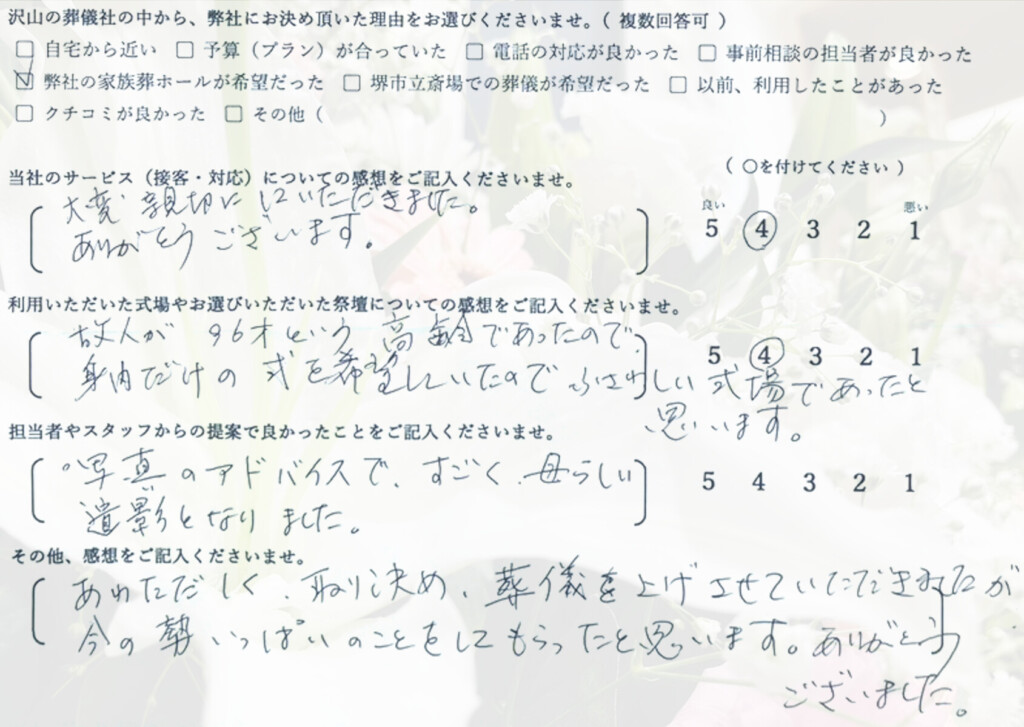 沢山の葬儀社の中から、弊社にお決め頂いた理由をお選びくださいませ。（ 複数回答可 ）
□ 自宅から近い □ 予算（プラン）が合っていた □ 電話の対応が良かった □ 事前相談の担当者が良かった
☑ 弊社の家族葬ホールが希望だった □ 堺市立斎場での葬儀が希望だった □ 以前、利用したことがあった
□ クチコミが良かった □ その他（ ）
（ 〇を付けてください ）
当社のサービス（接客・対応）についての感想をご記入くださいませ。
大変 親切にしていただきました。
ありがとう ございます。
良い 悪い
5 4 3 2 1
利用いただいた式場やお選びいただいた祭壇についての感想をご記入くださいませ。
故人が 96才という 高齢であったので、
身内だけの 式を希望していたので ふさわしい 式場であったと
思います。
5 4 3 2 1
担当者やスタッフからの提案で良かったことをご記入くださいませ。
写真のアドバイスで、すごく、母らしい
遺影となりました。
5 4 3 2 1
その他、感想をご記入くださいませ。
あわただしく、取り決め、葬儀を上げさせていただきましたが
今の 勢いっぱいのことをしてもらったと思います。ありがとう
ございました。